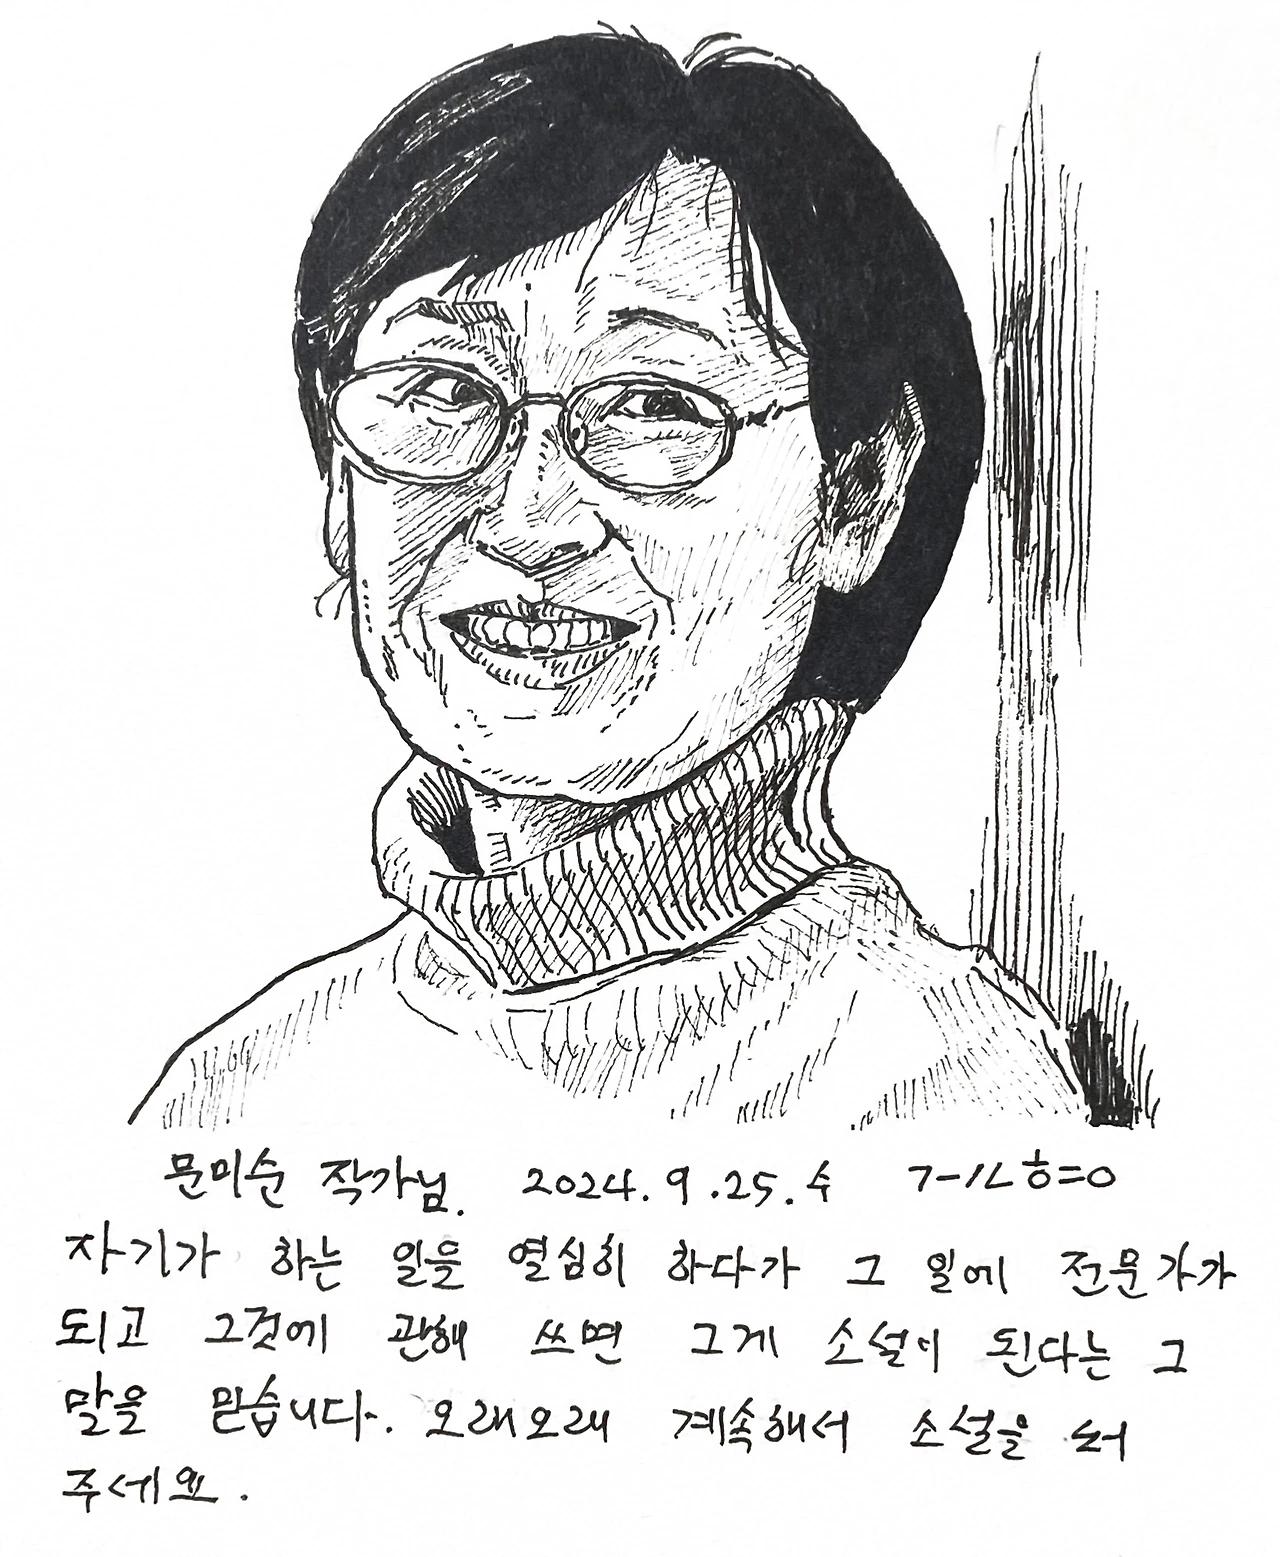 문미순 작가님. 2024. 9. 25. 수 ㄱㅡㅅㄴㅎ=ㅇ
자기가 하는 일을 열심히 하다가 그 일에 전문가가
되고 그것에 관해 쓰면 그게 소설이 된다는 그
말을 믿습니다. 오래오래 계속해서 소설을 써
주세요.